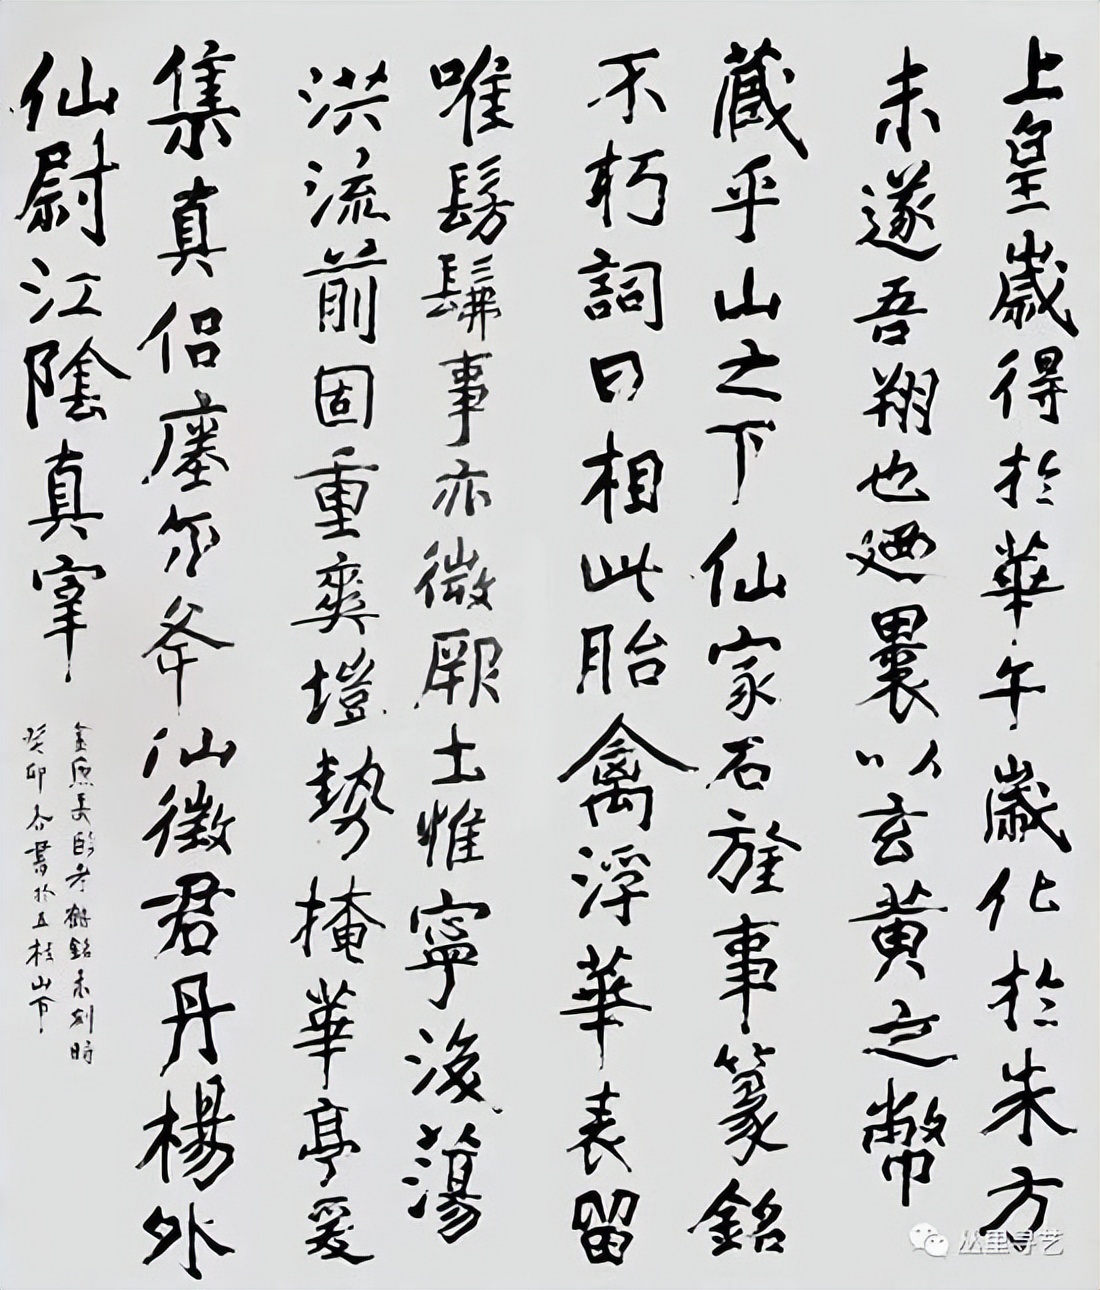 上皇歲得於華午歲化於朱方
未遂吾翔也迺裹以玄黄之幣
藏乎山之下仙家石旌事篆銘
不朽詞曰相此胎禽浮華表留
唯髣髴事亦微厥土惟寧後蕩
洪流前固重爽塏勢掩華亭爰
集真侣瘞尔徵君丹楊外
仙尉江陰真宰
金鶴銘未刻時
癸卯書於五枝山下
丛里寻艺